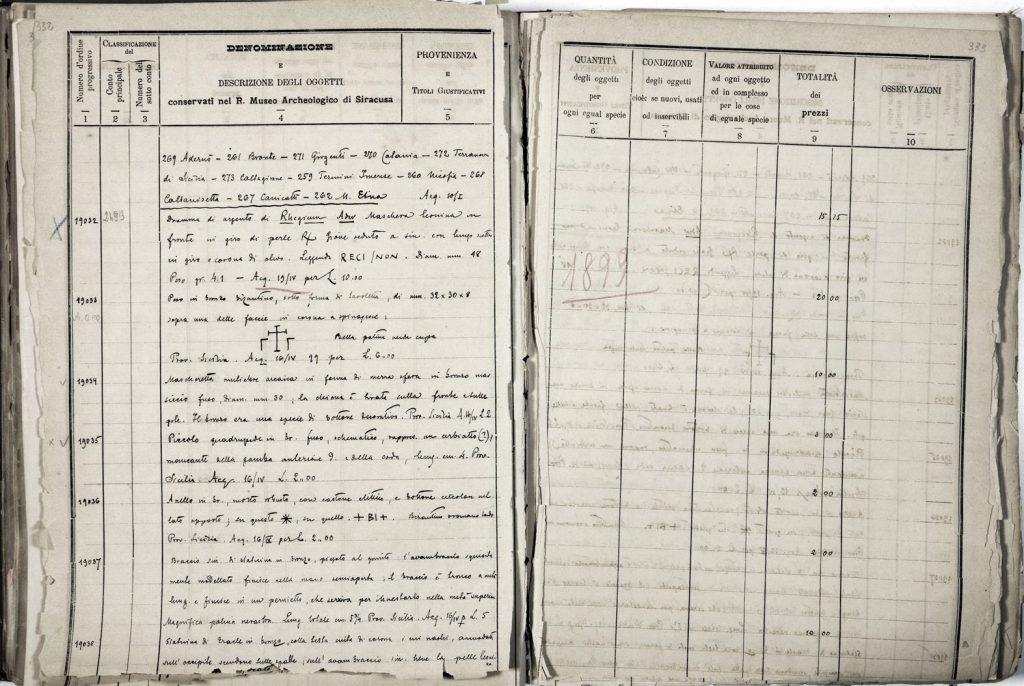 332
Numero d'ordine progressivo
CLASSIFICAZIONE del
Conto principale
Numero del sotto conto
DENOMINAZIONE
E
DESCRIZIONE DEGLI OGGETTI
conservati nel R. Museo Archeologico di Siracusa
PROVENIENZA
E
TITOLI GIUSTIFICATIVI
1 2 3 4 5
269 Adernò - 261 Bronte - 271 Girgenti - 270 Catania - 272 Terranova
di Sicilia - 273 Caltagirone - 259 Termini Imerese - 260 Nicosia - 268
Caltanissetta - 267 Canicattì - 262 M. Etna Acq. 10/I
19032 Dramma di argento di Rhegium Adv Maschera leonina in
fronte in giro di perle R Giove seduto a sin. con lungo
in giro e corona di ulivo. Leggenda RECI/NON. Diam. mm 18
Peso gr. 4.1 - Acq. 19/IV per L. 10.00
19033 Peso in bronzo bizantino, sotto forma di tavoletta, di mm. 32 x 30 x 8
sopra una delle faccie in corona a spinapesce;
Bella patina verde cupa
Prov. Sicilia. Acq. 16/IV 99 per L. 6.00
19034 Mascheretta muliebre arcaica in forma di mezza sfera in bronzo mas
siccio fuso, diam. mm 30; la chioma è tirata sulla fronte e sulle
gote. Il bronzo era una specie di bottone decorativo. Prov. Sicilia A. 16/IV L 2
19035 Piccolo quadrupede in br. fuso, schematico, rappres. uno cerbiatto (?);
mancante della gamba anteriore d. e della coda, lung. cm. 4. Prov.
Sicilia Acq. 16/IV L. 2.00
19036 Anello in br., molto robusto, con castone elittico, e bottone circolare nel
lato opposto; su questo ✳, su quello + BI +. Bizantino o romano tardo
Prov. Sicilia. Acq. 16/IV per L. 2.00
19037 Braccio sin. di statuina in bronzo, piegato al gomito; l'avambraccio
mente modellato finisce nella mano semiaperta; il braccio è tronco a metà
lung. e finisce in un pernietto, che serviva per innestarlo nella metà superiore
Magnifica patina nerastra. Lung. totale cm. 5¾. Prov. Sicilia. Acq. 16/IV p L. 5
19038 Statuina di Eracle in bronzo, colla testa cinta di corona i cui nastri, annodati
sull'occipite scendono sulle spalle; sull'avambraccio sin. tiene la pelle leoni-
333
QUANTITÀ
degli oggetti
per
ogni egual specie
CONDIZIONE
degli oggetti
cioè: se nuovi, usati
od inservibili
VALORE ATTRIBUITO
ad ogni oggetto
ed in complesso
per le cose
di eguale specie
TOTALITÀ
dei
prezzi
OSSERVAZIONI
6 7 8 9 10
15 15
1899
20 00
10 00
2 00
2 00
10 00